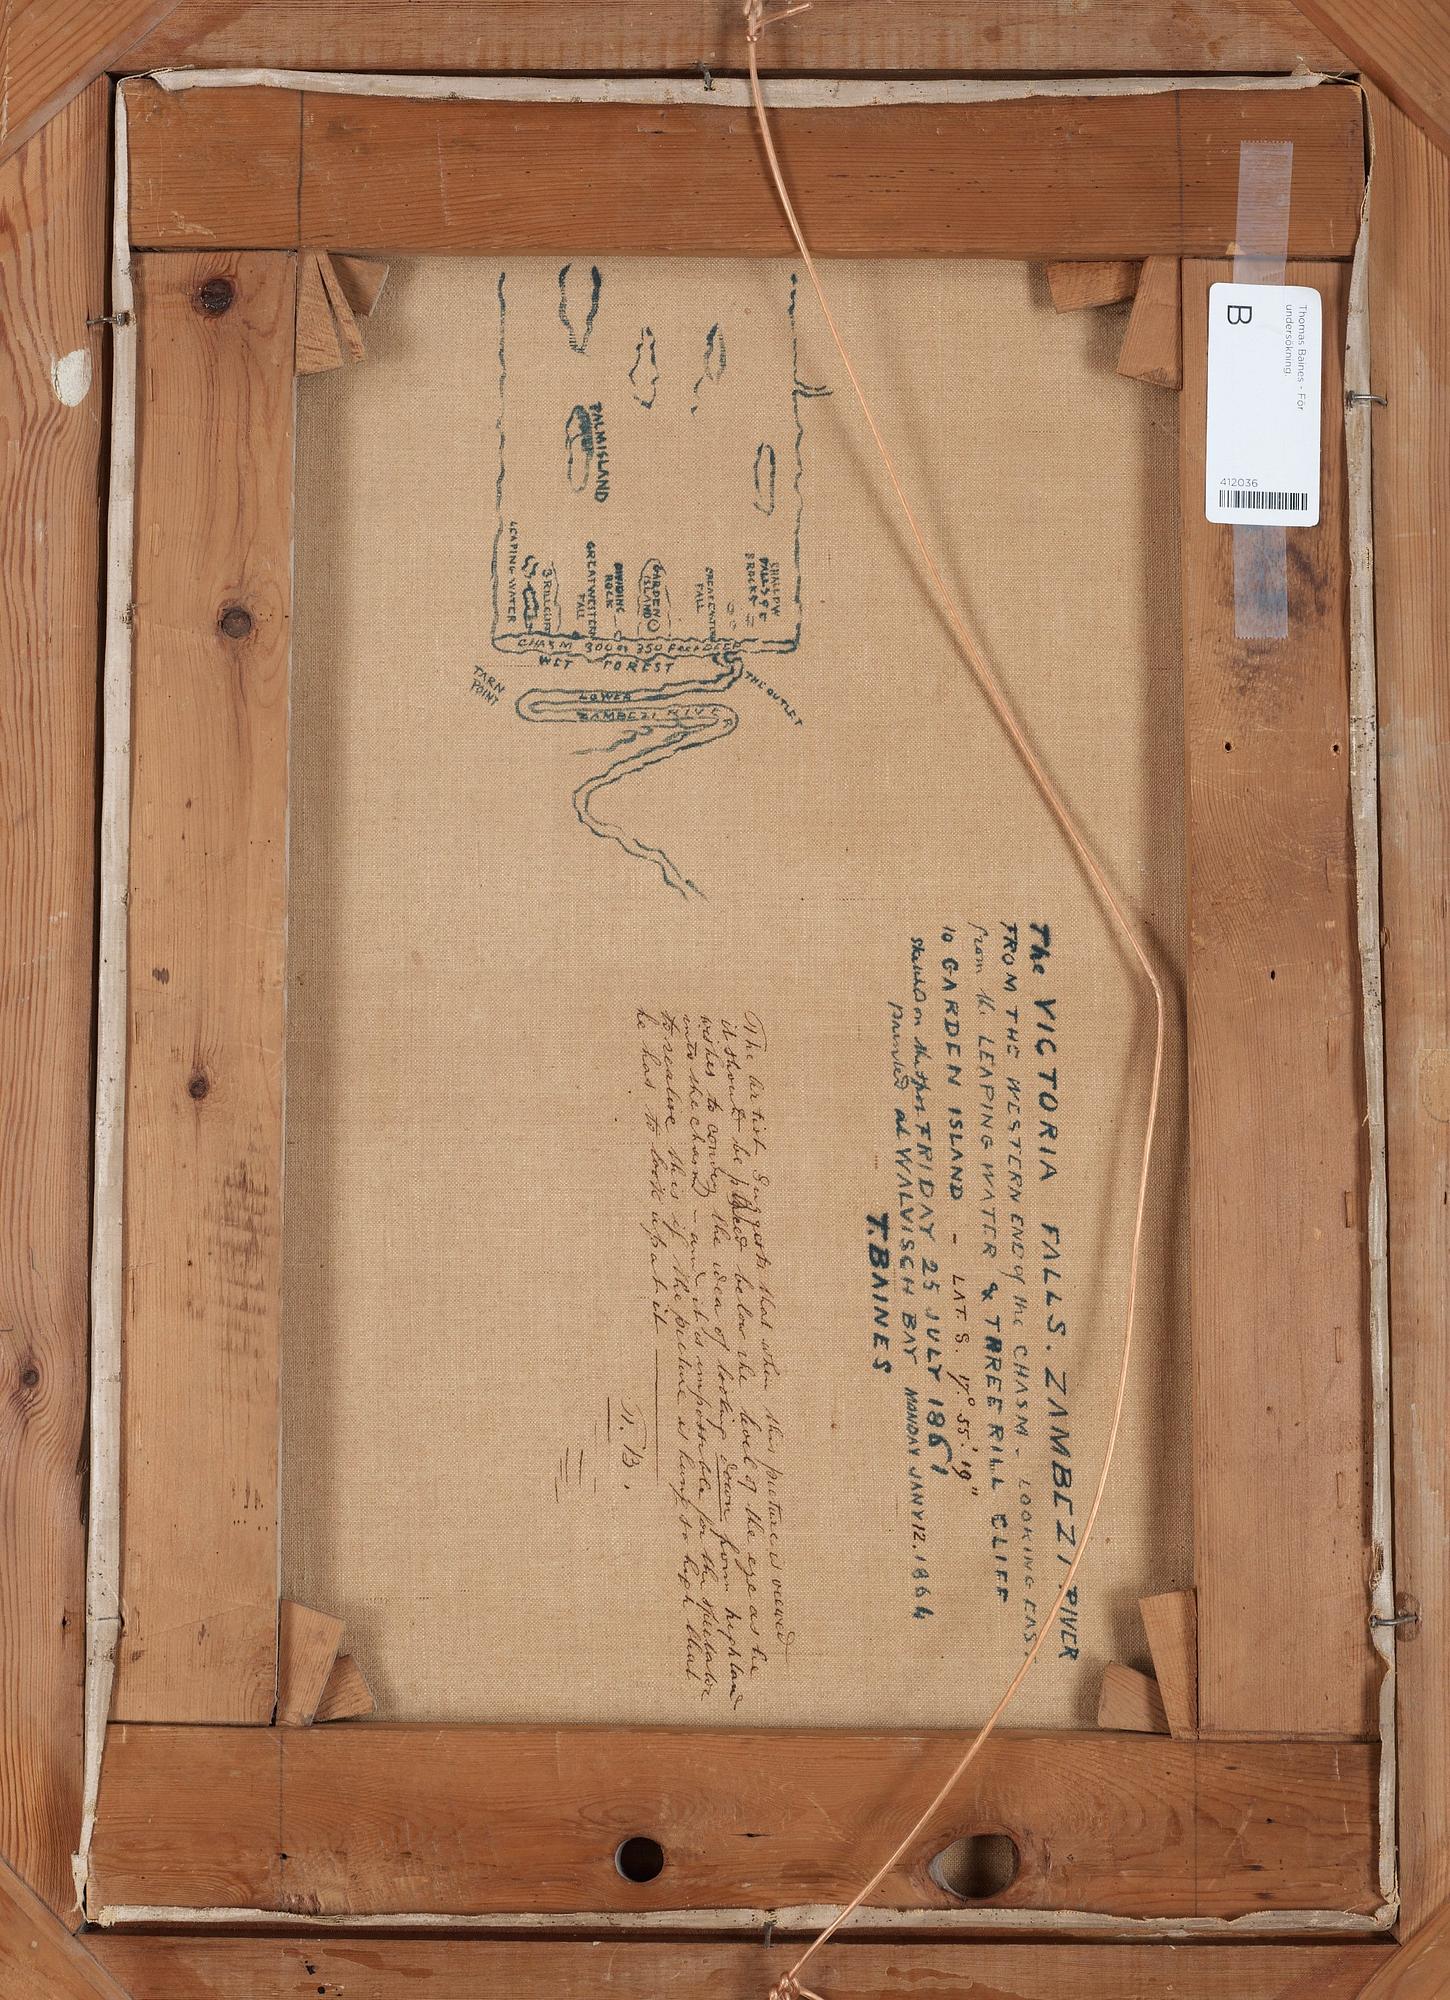 The VICTORIA FALLS. ZAMBEZI RIVER
FROM THE WESTERN END of the CHASM - LOOKING EAST
from the LEAPING WATER & THREE RILL CLIFF
to GARDEN ISLAND - LAT S. 17° 55' 19"
sketched on the spot FRIDAY 25 JULY 1862
painted at WALVISCH BAY MONDAY JANY 12. 1864
T. BAINES
The artist suggests that when this picture is viewed
it should be placed below the level of the eye as he
wishes to convey the idea of looking down from highland
into the chasm - and it is impossible for the spectator
to realise this if the picture is hung so high that
he has to look up at it
T. B.
PALM ISLAND
LEAPING WATER
3 RILL CLIFF
GREAT WESTERN
FALL
DIVIDING
ROCK
GARDEN
ISLAND
GREAT EASTERN
FALL
SHALLOW
FALLS
ROCKS
CHASM 300 or 350 Feet DEEP
WET FOREST
TARN
POINT
THE OUTLET
LOWER
ZAMBEZI RIVER
Thomas Baines - För
undersökning.
B
412036